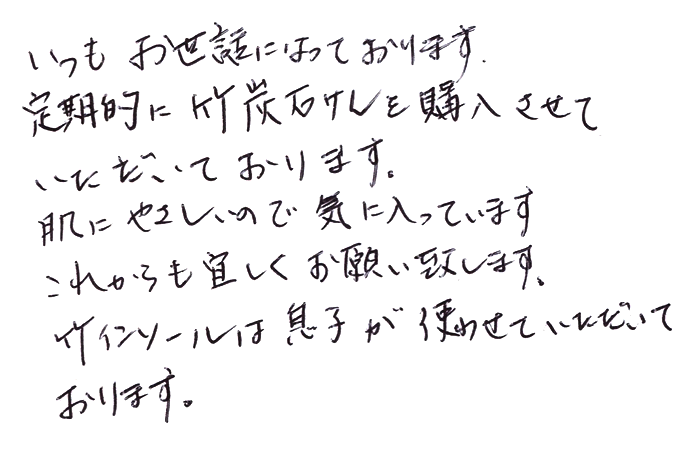 いつもお世話になっております.
定期的に竹炭石けんを購入させて
いただいております。
肌にやさしいので気に入っています
これからも宜しくお願い致します。
竹インソールは息子が使わせていただいて
おります。